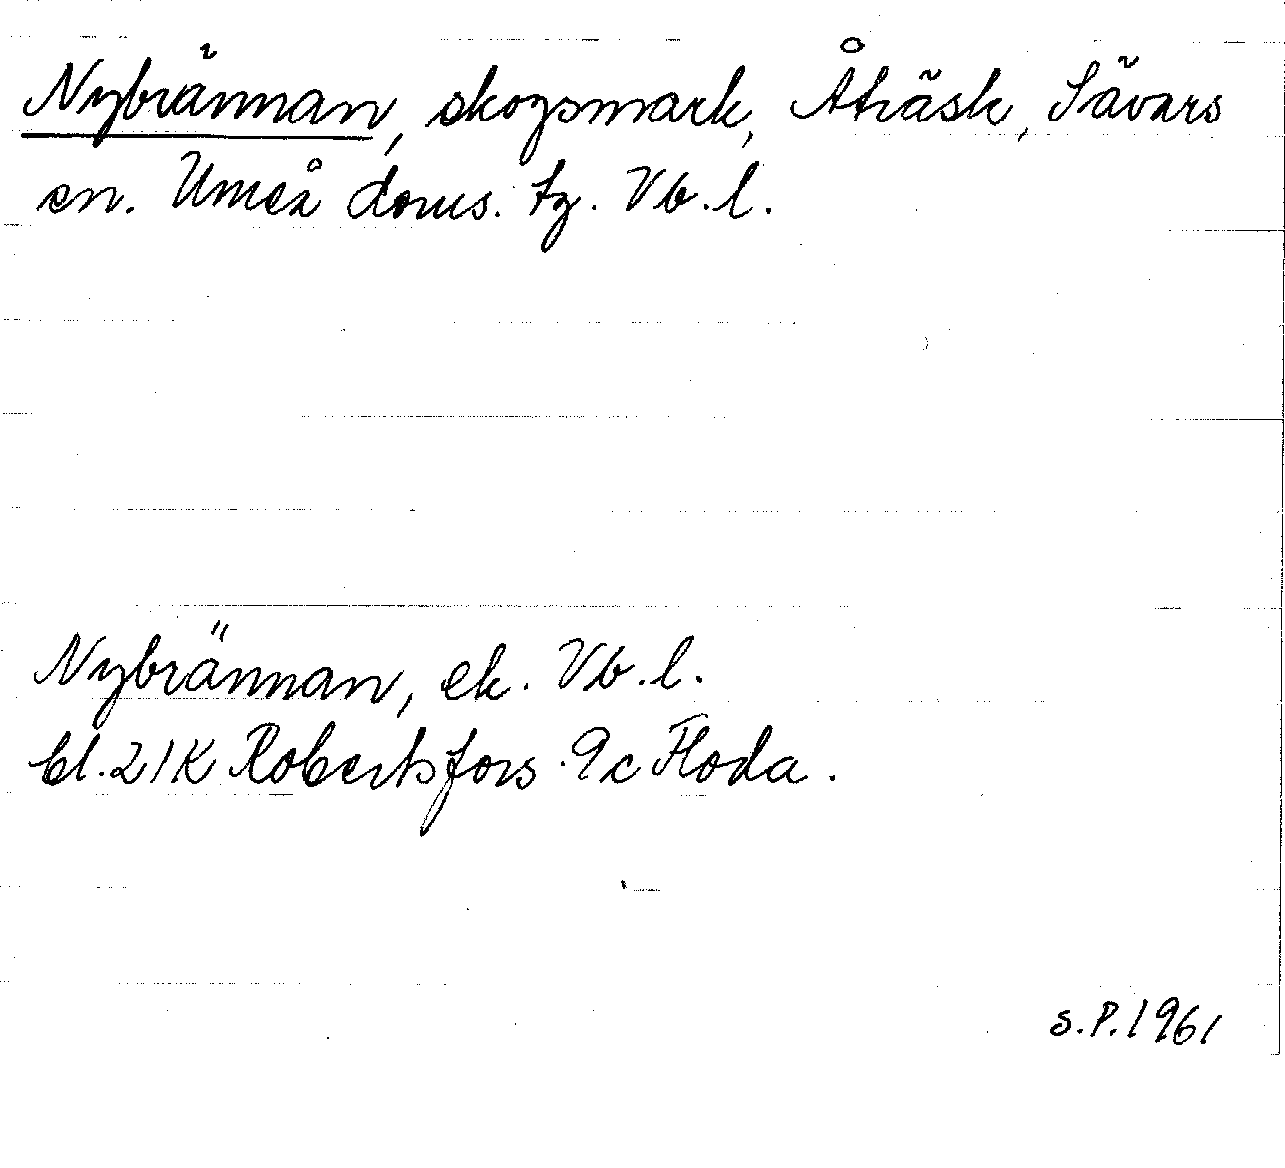 Nybrännan, skogsmark, Åträsk, Sävars
sn. Umeå doms. tg. Vb.l.
Nybrännan, ek. Vb.l.
bl. 21K Robertsfors 9c Floda.
S.P. 1961